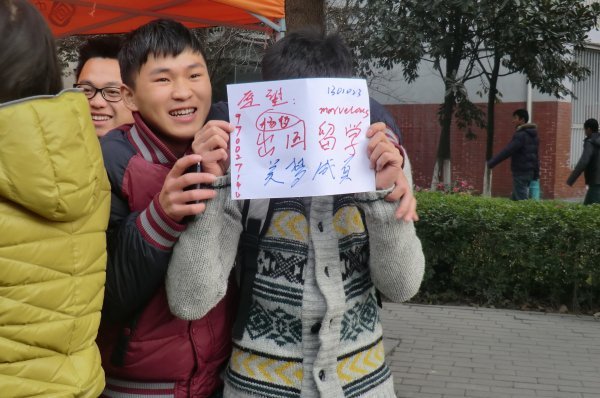 愿望: 1301023
marvelous
出国留学
美梦成真